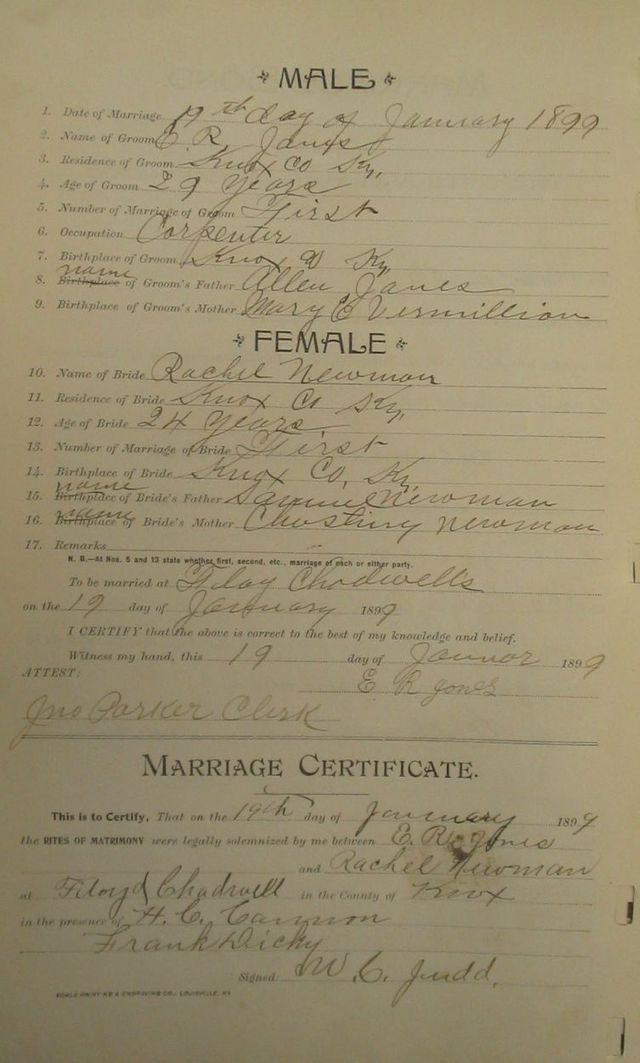 MALE
1. Date of Marriage 19th day of January 1899
2. Name of Groom E R Jones
3. Residence of Groom Knox Co Ky,
4. Age of Groom 29 Years
5. Number of Marriage of Groom First
6. Occupation Carpenter
7. Birthplace of Groom, Knox Co Ky
name
8. Birthplace of Groom's Father Allen Jones
9. Birthplace of Groom's Mother Mary E Vermillion
FEMALE
10. Name of Bride Rachel Newman
11. Residence of Bride Knox Co Ky,
12. Age of Bride 24 Years,
13. Number of Marriage of Bride First
14. Birthplace of Bride Knox Co, Ky,
name
15. Birthplace of Bride's Father Samuel Newman
name
16. Birthplace of Bride's Mother Newman
17. Remarks
N. B.—At Nos. 5 and 13 state whether first, second, etc., marriage of each or either party.
To be married at Floy Chadwells
on the 19 day of January 1899
I CERTIFY that the above is correct to the best of my knowledge and belief.
Witness my hand, this 19 day of Januar 1899
ATTEST:
E R Jones
Jno Parker Clerk
MARRIAGE CERTIFICATE.
This is to Certify, That on the 19th day of January 1899
the RITES OF MATRIMONY were legally solemnized by me between E. R. Jones
and Rachel Newman
at Floyd Chadwell in the County of Knox
in the presence of H. C. Cannon
Frank Dicky
Signed: W. C. Judd.
PRINTING & ENGRAVING CO., LOUISVILLE, KY